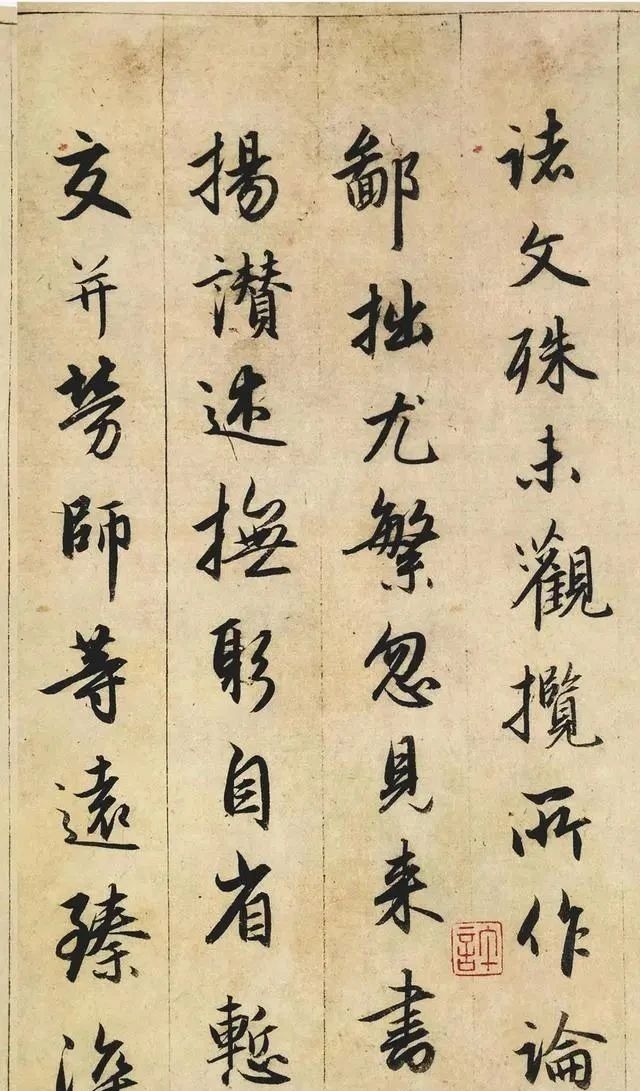 諸文殊未觀攬所作論
鄙拙尤繁忽見来書
揚讃述撫躬自省慙
交并勞師等遠臻深